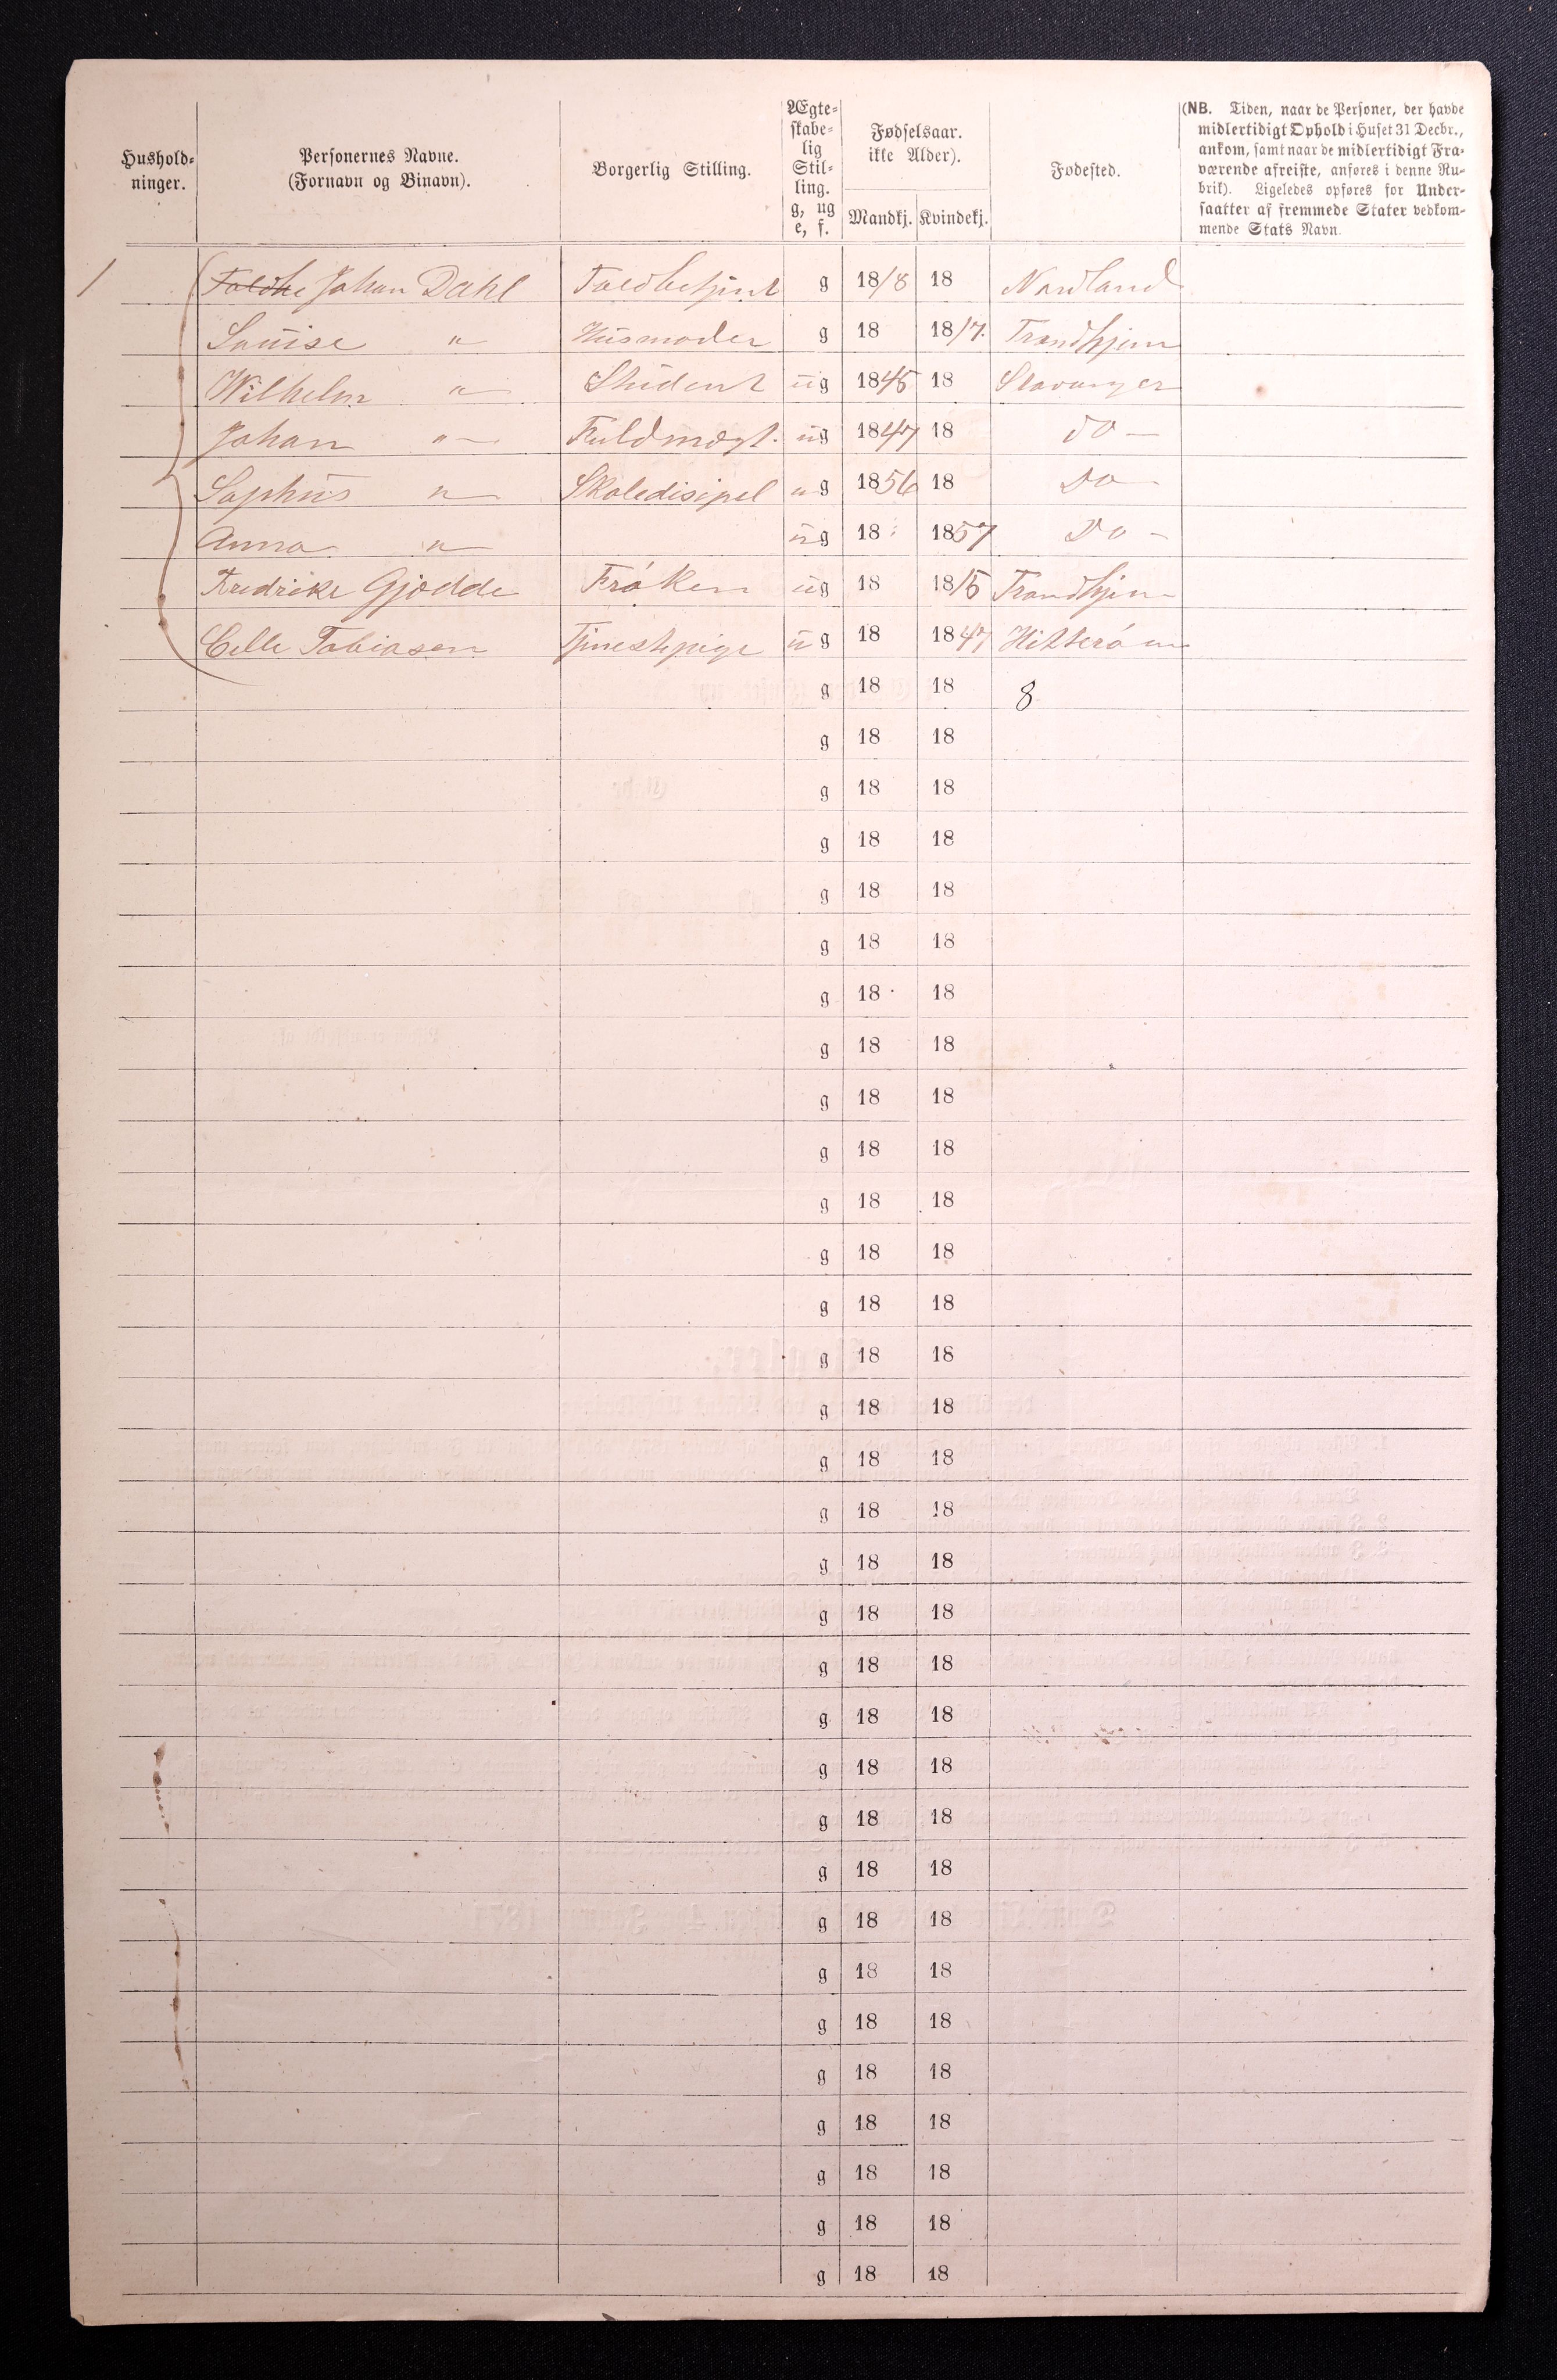 Hushold-
ninger.
Personernes Navne.
(Fornavn og Binavn).
Borgerlig Stilling.
Ægte-
skabe-
lig
Stil-
ling.
g, ug
e, f.
Fødselsaar.
ikke Alder).
Mandkj. Kvindekj.
Fødested.
(NB. Tiden, naar de Personer, der havde
midlertidigt Ophold i Huset 31 Decbr.,
ankom, samt naar de midlertidigt Fra-
værende afreiste, anføres i denne Ru-
brik). Ligeledes opføres for Under-
saatter af fremmede Stater vedkom-
mende Stats Navn.
1 Toldbe Johan Dahl Toldbetjent g 18/8 18 Nordland
Louise " Husmoder g 18 18/7. Trondhjem
Wilhelm " Student ug 1845 18 Stavanger
Johan " Fuldmægt. ug 1847 18 do
Sophus " Skoledisipel ug 1856 18 Do
Anna " ug 18 1857 Do
Fredrike Gjødde Frøken ug 18 18/5 Trondhjem
Celle Tobiasen Tjinestepige ug 18 1847 Hitterøen
g 18 18 8
g 18 18
g 18 18
g 18 18
g 18 18
g 18 18
g 18 18
g 18 18
g 18 18
g 18 18
g 18 18
g 18 18
g 18 18
g 18 18
g 18 18
g 18 18
g 18 18
g 18 18
g 18 18
g 18 18
g 18 18
g 18 18
g 18 18
g 18 18
g 18 18
g 18 18
g 18 18
g 18 18
g 18 18
g 18 18
g 18 18
g 18 18